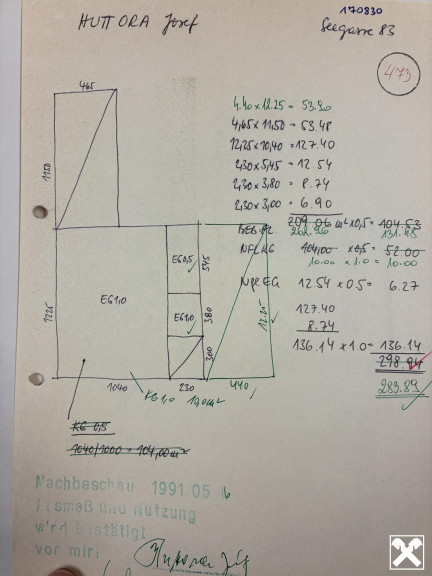 170830
HUTTORA Josef
Seegasse 83
473
465
4.40 x 12.25 = 53.90
4,65 x 11,50 = 53.48
12,25 x 10,40 = 127.40
2,30 x 5,45 = 12.54
2,30 x 3,80 = 8.74
2,30 x 3,00 = 6.90
1150
209.06 m² x 0,5 = 104.53
262.96
131.48
NFL KG 104,00 x 0,5 = 52.00
10.00 x 1.0 = 10.00
EG 0,5
545
NFL EG 12.54 x 0.5 = 6.27
EG 1,0
EG 1,0
1225
380
12.25
127.40
8.74
136.14 x 1.0 = 136.14
300
298.94
283.89
1040
230
440
KG 1,0 10,0 m²
KG 0,5
1040/1000 = 104,00 m²
Nachbeschau 1991 05
Ausmaß und Nutzung
wird bestätigt
vor mir: